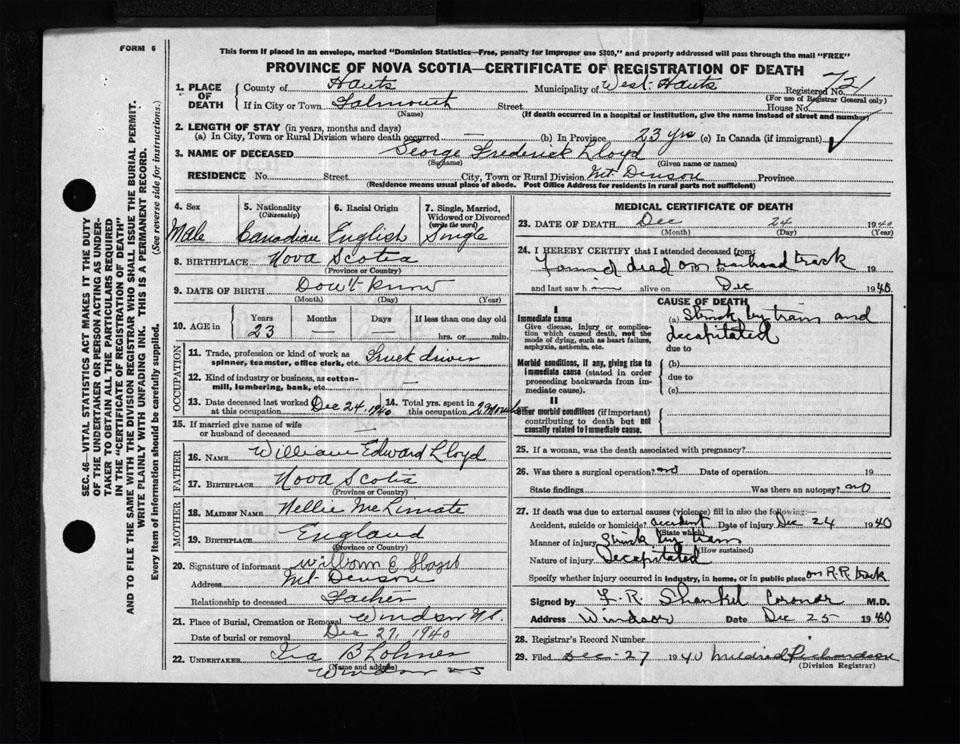 FORM 6
This form if placed in an envelope, marked "Dominion Statistics—Free, penalty for improper use $300," and properly addressed will pass through the mail "FREE"
PROVINCE OF NOVA SCOTIA—CERTIFICATE OF REGISTRATION OF DEATH
1. PLACE OF DEATH
County of Hants Municipality of West Hants Registered No. 721
(For use of Registrar General only)
If in City or Town Falmouth Street House No.
(Name) (If death occurred in a hospital or institution, give the name instead of street and number)
2. LENGTH OF STAY (in years, months and days)
(a) In City, Town or Rural Division where death occurred — (b) In Province 23 yrs (c) In Canada (if immigrant)
3. NAME OF DECEASED George Frederick Lloyd
(Surname) (Given name or names)
RESIDENCE No. Street City, Town or Rural Division Mt Denson Province
(Residence means usual place of abode. Post Office Address for residents in rural parts not sufficient)
4. Sex Male
5. Nationality (Citizenship) Canadian
6. Racial Origin English
7. Single, Married, Widowed or Divorced (write the word) Single
8. BIRTHPLACE Nova Scotia
(Province or Country)
9. DATE OF BIRTH Don't know
(Month) (Day) (Year)
10. AGE in Years 23 Months — Days — If less than one day old hrs. or min.
OCCUPATION
11. Trade, profession or kind of work as spinner, teamster, office clerk, etc. Truck driver
12. Kind of industry or business, as cotton-mill, lumbering, bank, etc. —
13. Date deceased last worked at this occupation Dec 24, 1940
14. Total yrs. spent in this occupation 2 Months
15. If married give name of wife or husband of deceased —
FATHER
16. NAME William Edward Lloyd
17. BIRTHPLACE Nova Scotia
(Province or Country)
MOTHER
18. MAIDEN NAME Nellie
19. BIRTHPLACE England
(Province or Country)
20. Signature of informant William E Lloyd
Address Mt Denson
Relationship to deceased Father
21. Place of Burial, Cremation or Removal Windsor N.S.
Date of burial or removal Dec 27, 1940
22. UNDERTAKER Ira B Lohnes
(Name and address)
Windsor NS
MEDICAL CERTIFICATE OF DEATH
23. DATE OF DEATH Dec 24 1940
(Month) (Day) (Year)
24. I HEREBY CERTIFY that I attended deceased from:
Found dead on railroad track 19
and last saw h im alive on Dec 1940
CAUSE OF DEATH
I
Immediate cause
Give disease, injury or complication which caused death, not the mode of dying, such as heart failure, asphyxia, asthenia, etc.
(a) Struck by train and decapitated
due to
Morbid conditions, if any, giving rise to immediate cause (stated in order proceeding backwards from immediate cause).
(b)
due to
(c)
II
Other morbid conditions (if important) contributing to death but not causally related to immediate cause.
25. If a woman, was the death associated with pregnancy?
26. Was there a surgical operation? no Date of operation 19
State findings Was there an autopsy? no
27. If death was due to external causes (violence) fill in also the following:—
Accident, suicide or homicide? accident Date of injury Dec 24 1940
(State which)
Manner of injury Struck by train
(How sustained)
Nature of injury Decapitated
Specify whether injury occurred in industry, in home, or in public place on R.R track
Signed by F. R. Shankel Coroner M.D.
Address Windsor Date Dec 25 1940
28. Registrar's Record Number
29. Filed Dec-27 1940 Mildred Richardson
(Division Registrar)
SEC. 46—VITAL STATISTICS ACT MAKES IT THE DUTY
OF THE UNDERTAKER OR PERSON ACTING AS UNDER-
TAKER TO OBTAIN ALL THE PARTICULARS REQUIRED
IN THE "CERTIFICATE OF REGISTRATION OF DEATH"
AND TO FILE THE SAME WITH THE DIVISION REGISTRAR WHO SHALL ISSUE THE BURIAL PERMIT.
WRITE PLAINLY WITH UNFADING INK. THIS IS A PERMANENT RECORD.
Every item of information should be carefully supplied. (See reverse side for instructions.)